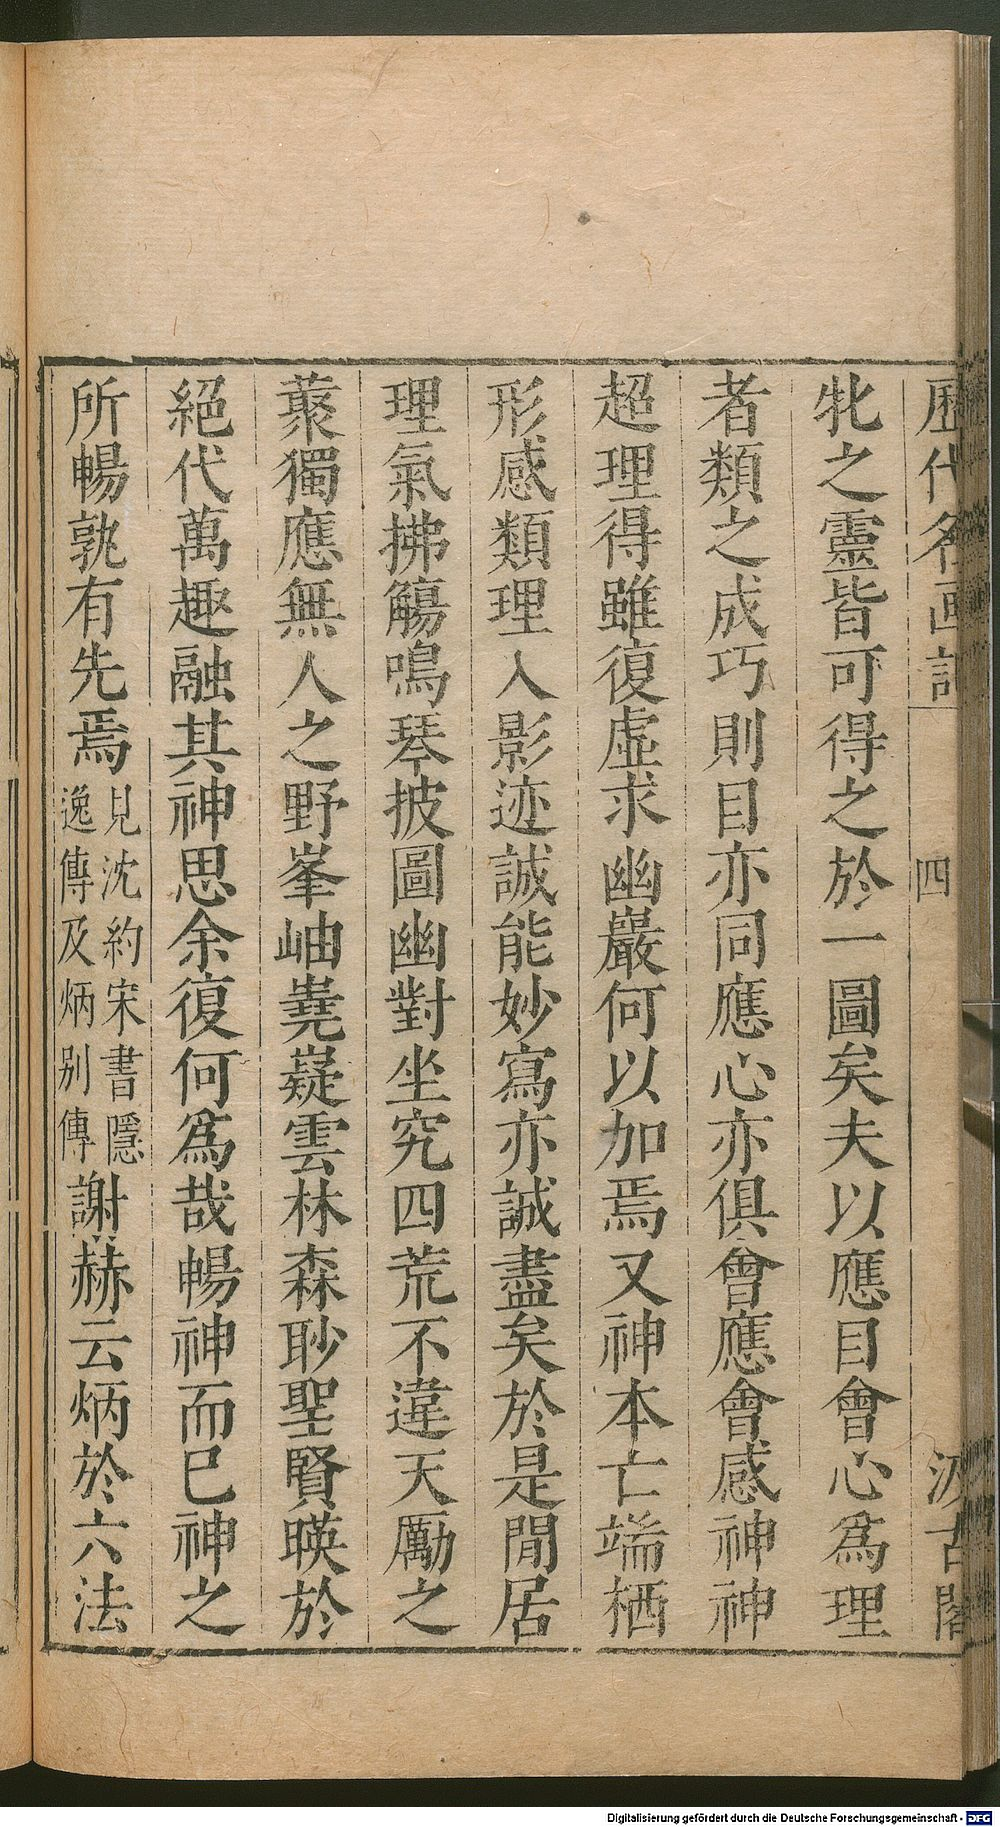 歷代名画記 四 汲古閣
牝之靈皆可得之於一圖矣夫以應目會心爲理
者類之成巧則目亦同應心亦俱會應會感神神
超理得雖復虛求幽巖何以加焉又神本亡端栖
形感類理入影迹誠能妙寫亦誠盡矣於是閒居
理氣拂觴鳴琴披圖幽對坐究四荒不違天勵之
藂獨應無人之野峯岫嶤嶷雲林森眇聖賢暎於
絕代萬趣融其神思余復何爲哉暢神而已神之
所暢孰有先焉
見沈約宋書隱
逸傳及炳別傳
謝赫云炳於六法
Digitalisierung gefördert durch die Deutsche Forschungsgemeinschaft - DFG